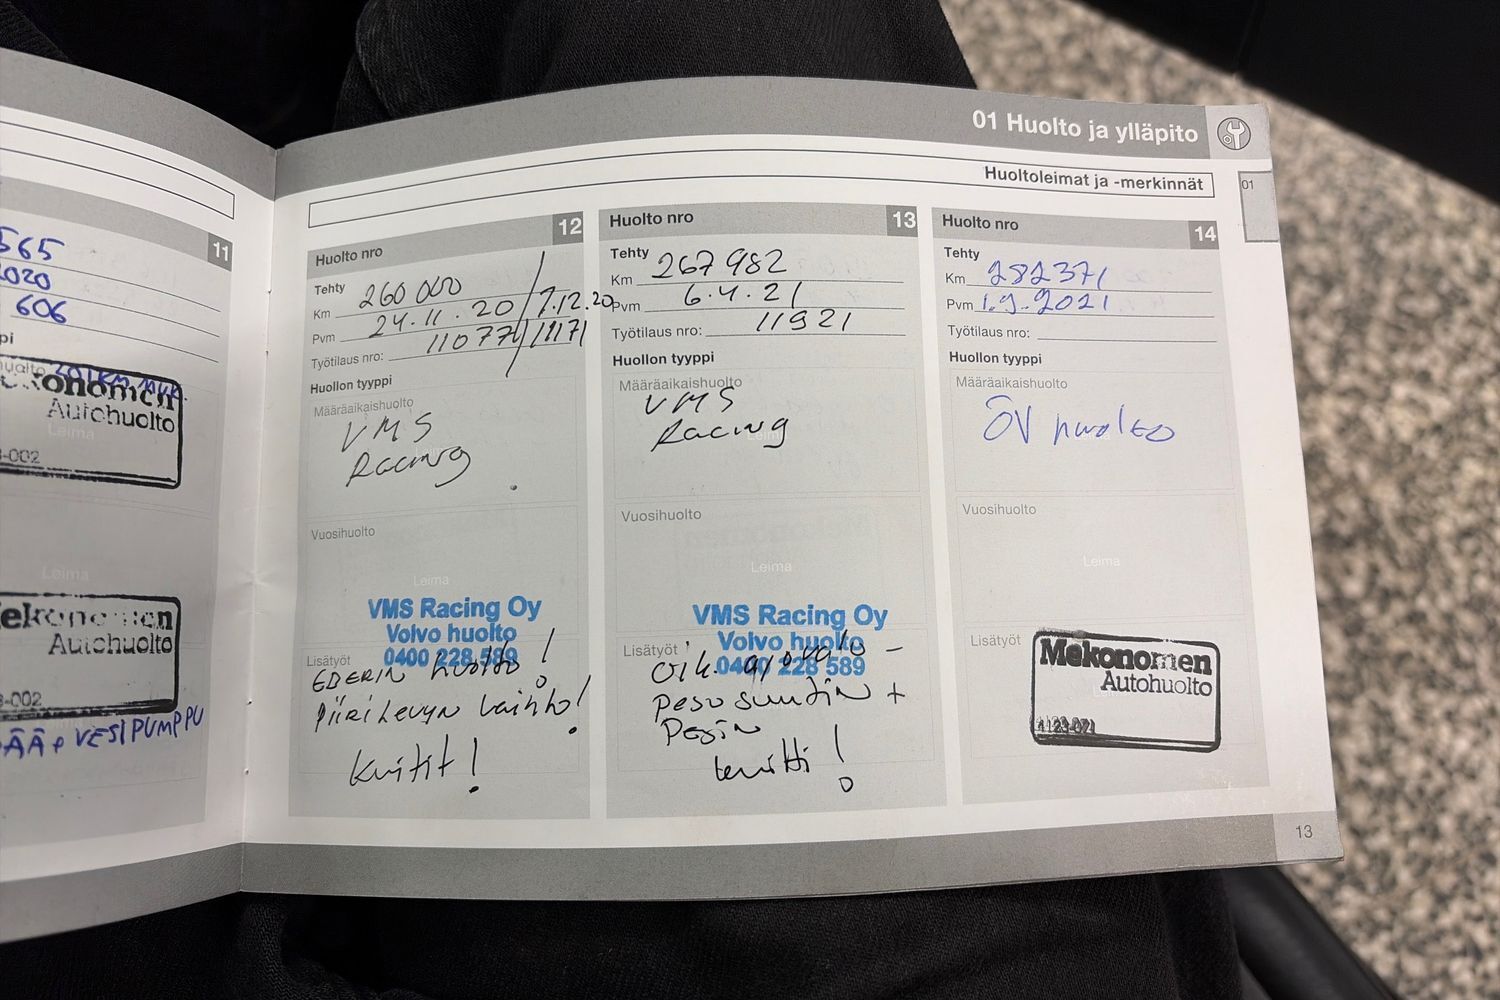 01 Huolto ja ylläpito
Huoltoleimat ja -merkinnät
01
11
565
2020
606
Mekonomen
Autohuolto
Leima
-002
Leima
Mekonomen
Autohuolto
-002
VESIPUMPPU
Huolto nro 12
Tehty
Km 260 000
Pvm 24.11.20 / 7.12.20
Työtilaus nro: 110771/11171
Huollon tyyppi
Määräaikaishuolto
VMS
Racing
Vuosihuolto
Leima
VMS Racing Oy
Volvo huolto
0400 228 589
Lisätyöt
EDERIN huolto!
Piirilevyn vaihto!
kuitit!
Huolto nro 13
Tehty
Km 267 982
Pvm 6.4.21
Työtilaus nro: 11921
Huollon tyyppi
Määräaikaishuolto
VMS
Racing
Leima
Vuosihuolto
Leima
VMS Racing Oy
Volvo huolto
0400 228 589
Lisätyöt
Oik. ajovalo -
pesusuutin +
Pesin
kuitti!
Huolto nro 14
Tehty
Km 282371
Pvm 1.9.2021
Työtilaus nro:
Huollon tyyppi
Määräaikaishuolto
ÖV huolto
Vuosihuolto
Leima
Lisätyöt
Mekonomen
Autohuolto
13